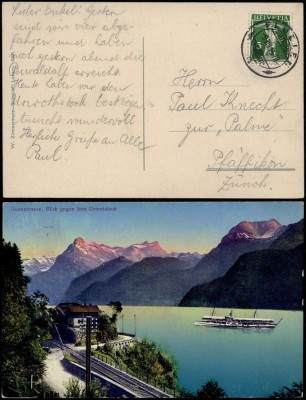 Lieber Onkel! Gestern
sind wir vier abge-
fahren und haben
noch gestern abend die
erreicht.
Heute haben wir den
bestiegen,
wundervoll
Herzliche Grüsse an Alle
Paul.
HELVETIA
5
Herrn
Paul Knecht
zur „Palme"
Pfäffikon
Zürich.
Axenstrasse, Blick gegen den Urirotstock